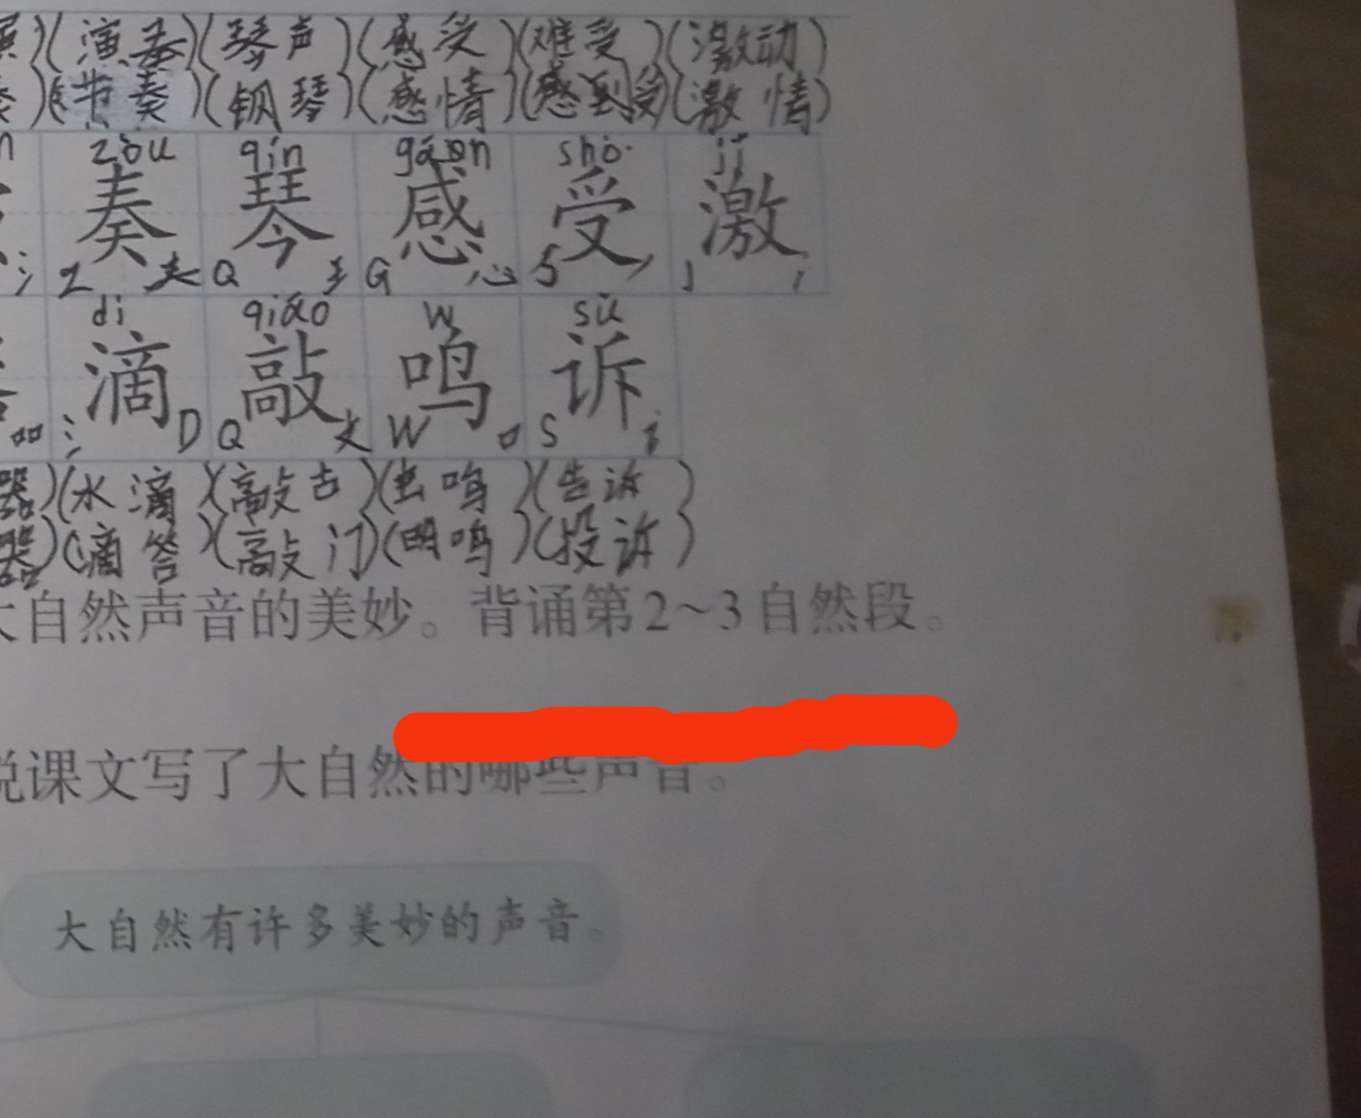 (演奏)(琴声)(感受)(难受)(激动)
(节奏)(钢琴)(感情)(感到受)(激情)
zòu qín gǎn shò jī
奏 琴 感 受 激
Z Q G 心 S J
dī qiāo W sù
滴 敲 鸣 诉
D Q 文 W 口 S 讠
器)(水滴)(敲古)(虫鸣)(告诉)
器)(滴答)(敲门)(鸣)(投诉)
大自然声音的美妙。背诵第2~3自然段。
说课文写了大自然的哪些声音。
大自然有许多美妙的声音。